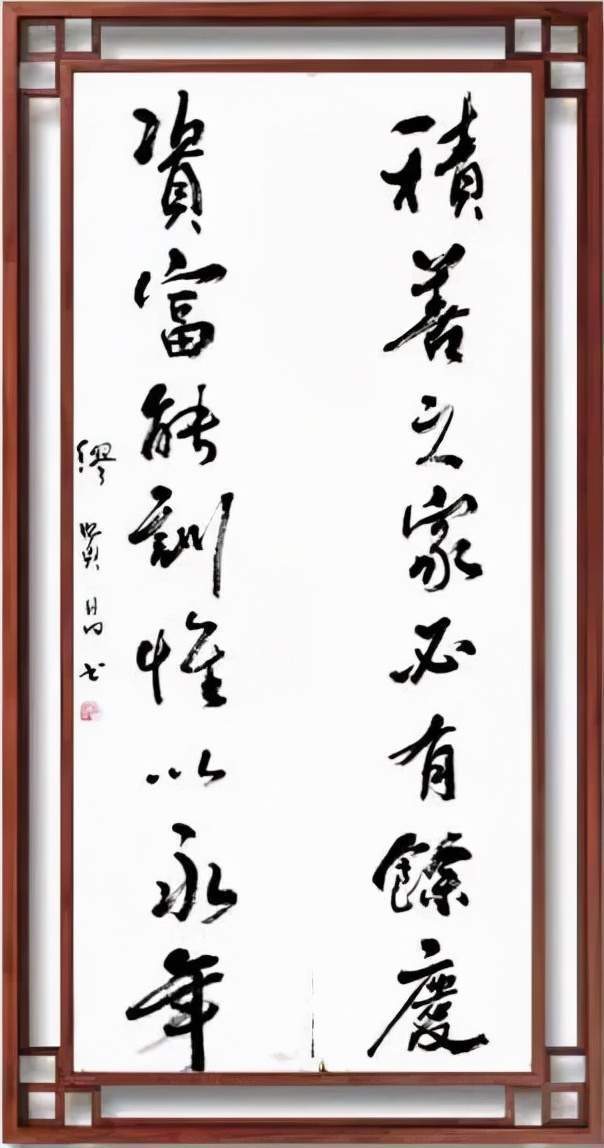 積善之家必有餘慶
資富能訓惟以永年
繆賢昌书